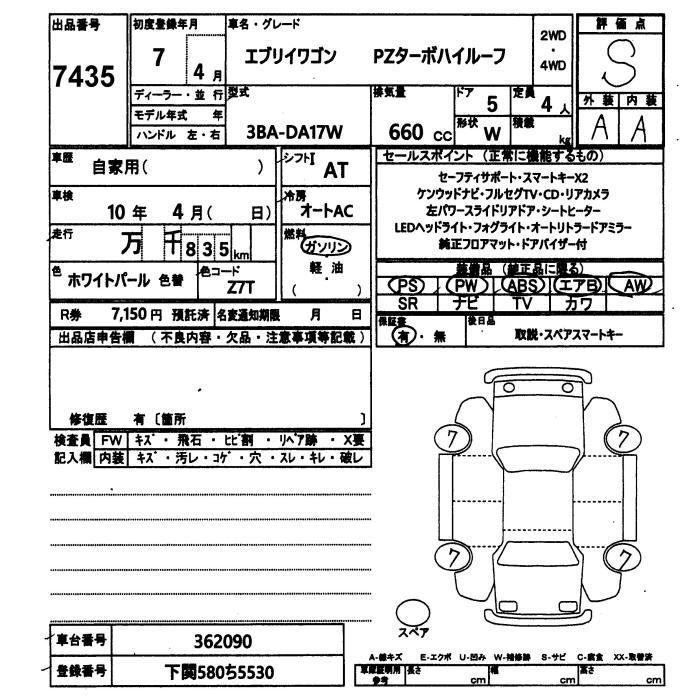 出品番号
7435
初度登録年月
7 4 月
車名・グレード
エブリイワゴン PZターボハイルーフ
2WD
・
4WD
評価点
S
外装 内装
A A
ディーラー・並行
モデル年式 年
ハンドル 左・右
型式
3BA-DA17W
排気量
660 CC
ドア
5
定員
4 人
形状 W
積載
kg
車歴
自家用( )
シフト
I AT
車検
10 年 4 月( 日)
冷房
オートAC
走行
万 千 8 3 5 km
燃料
ガソリン
軽・油
( )
色
ホワイトパール 色替
色コード
Z7T
R券 7,150 円 預託済
名変通知期限 月 日
セールスポイント (正常に機能するもの)
セーフティサポート・スマートキーX2
ケンウッドナビ・フルセグTV・CD・リアカメラ
左パワースライドリアドア・シートヒーター
LEDヘッドライト・フォグライト・オートリトラードアミラー
純正フロアマット・ドアバイザー付
装備品 (純正品に限る)
PS PW ABS エアB AW
SR ナビ TV カワ
保証書
有・無
後日品
取説・スペアスマートキー
出品店申告欄 (不良内容・欠品・注意事項等記載)
修復歴 有〔箇所 〕
検査員 FW キズ・飛石・ヒビ割・リペア跡・X要
記入欄 内装 キズ・汚レ・コゲ・穴・スレ・キレ・破レ
7 7
7 7
スペア
車台番号 362090
登録番号 下関580ち5530
A-線キズ E-エクボ U-凹み W-補修跡 S-サビ C-腐食 XX-取替済
車庫証明用
参考
長さ cm 幅 cm 高さ cm